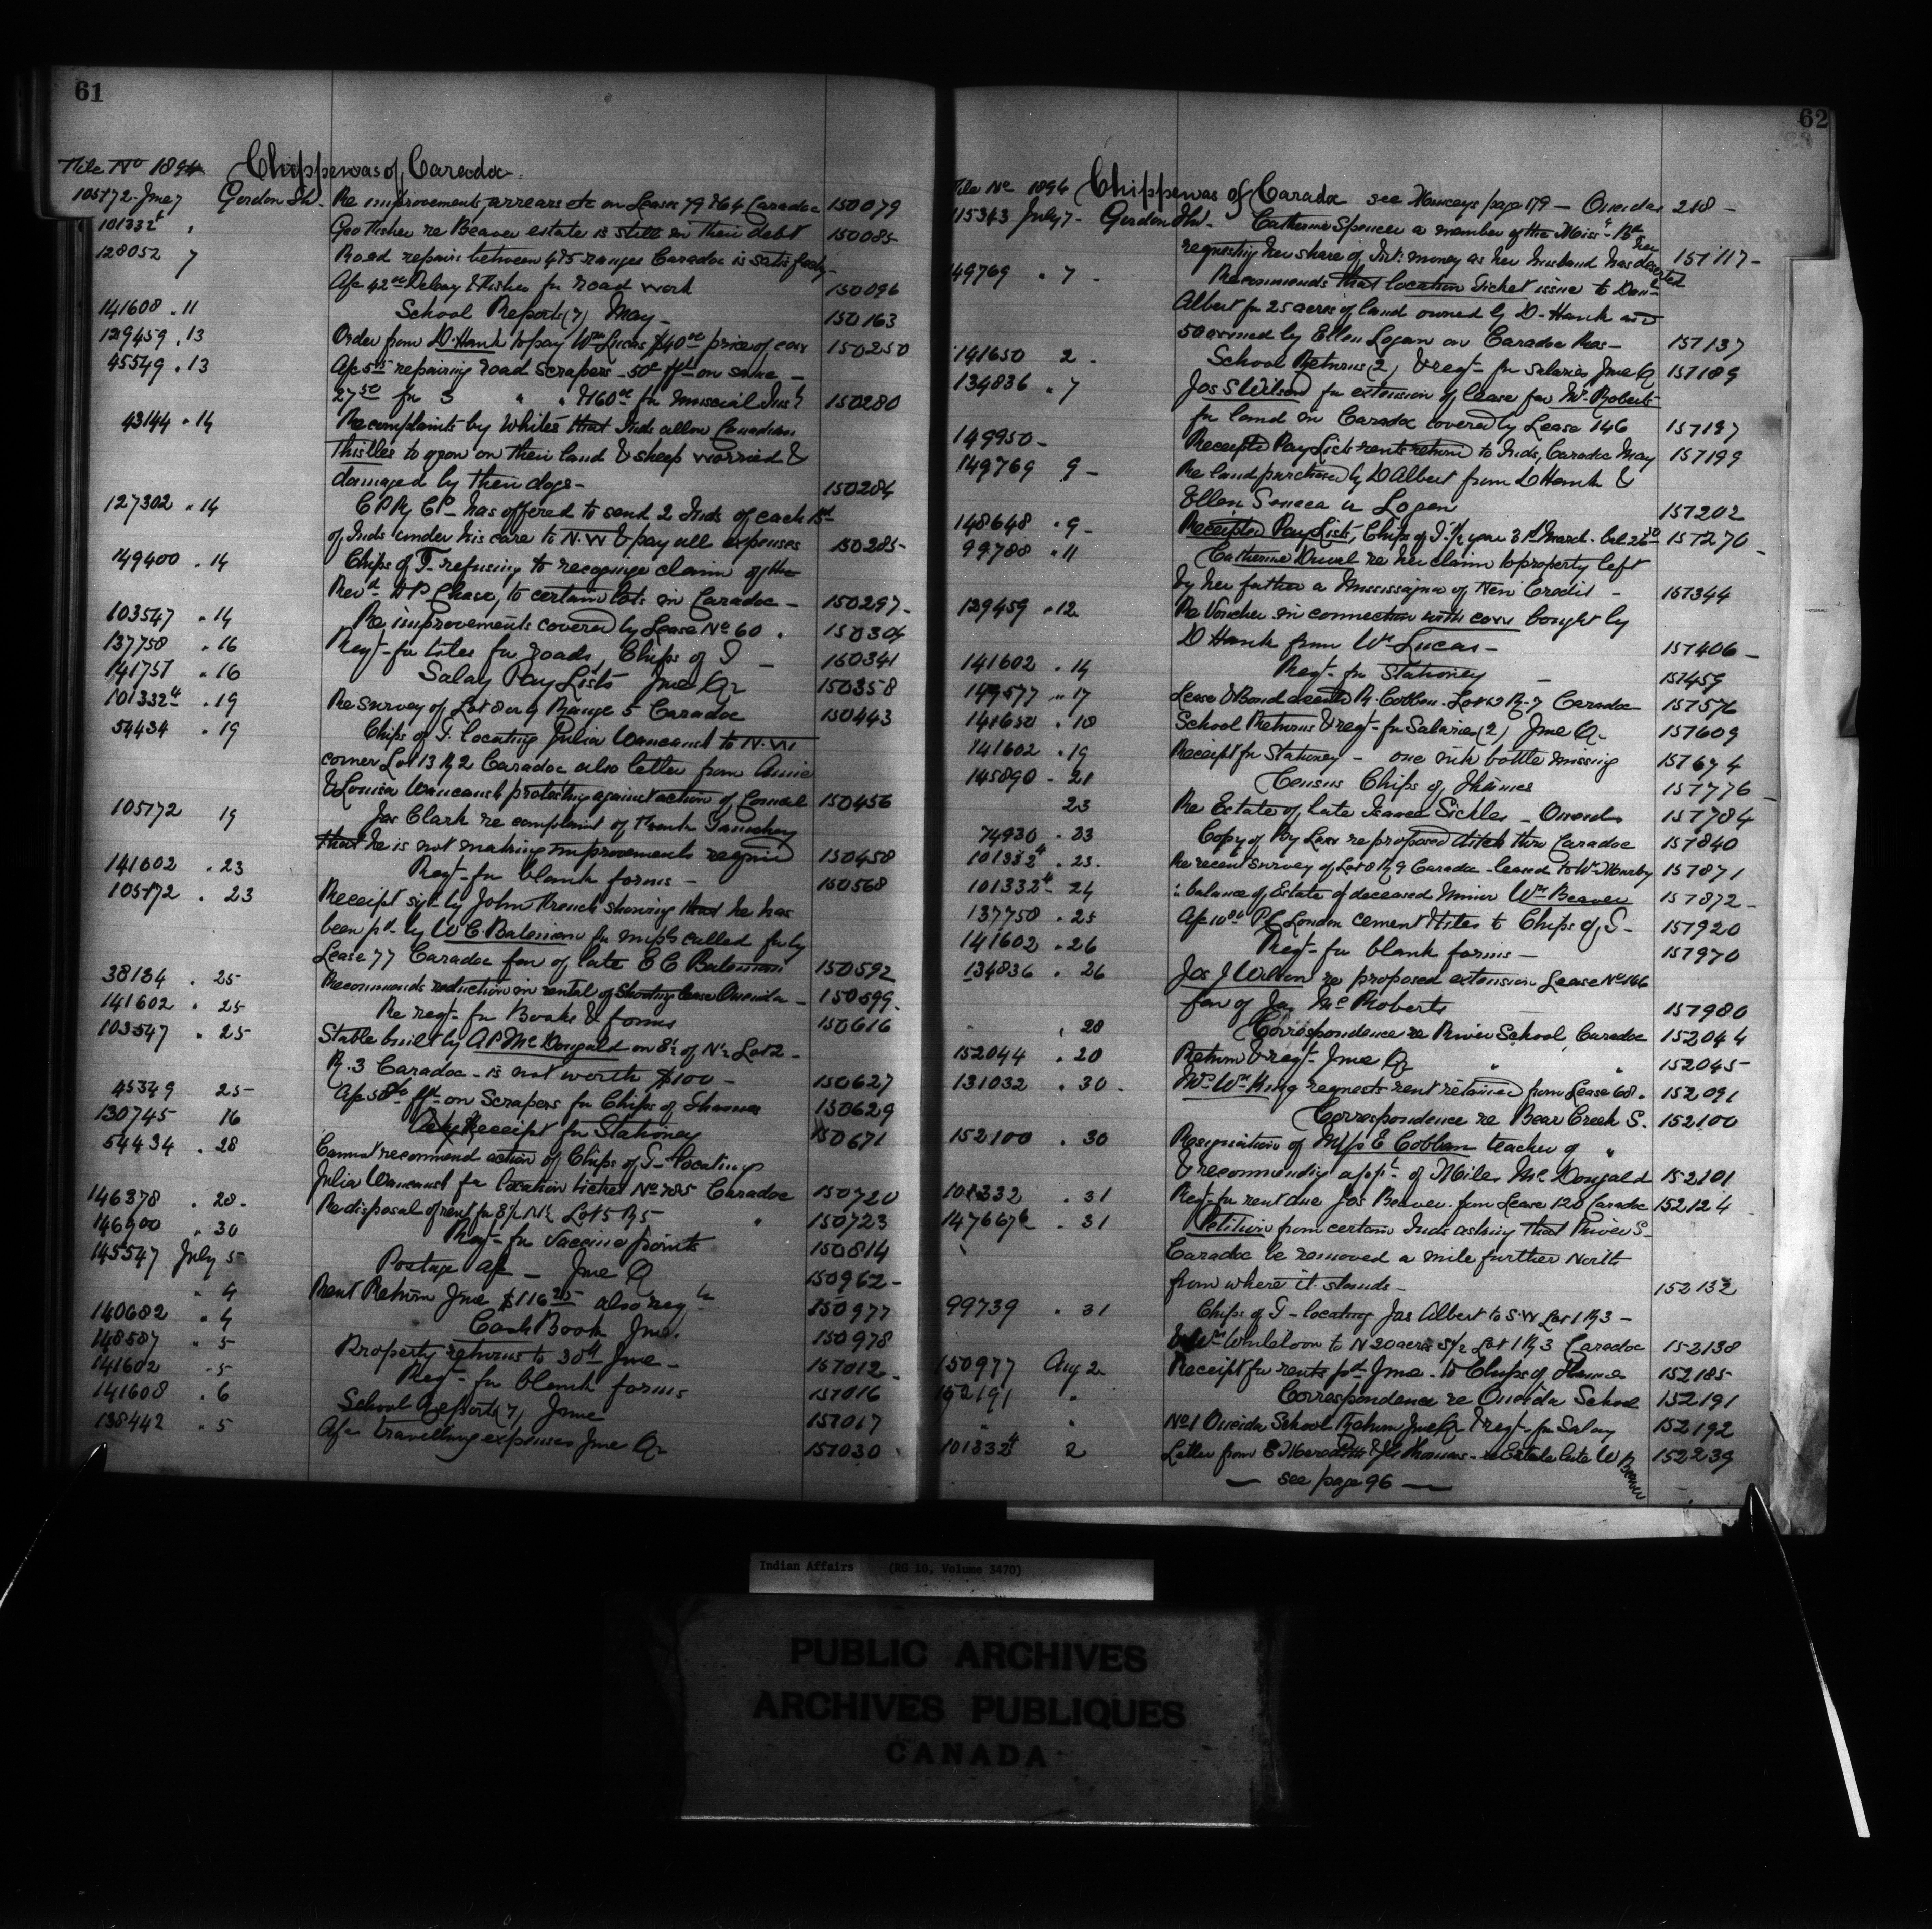 61
File No 1894 Chippewas of Caradoc.
105172 June 7 Gordon Th. Re improvements, arrears etc on Leases 79 & 64 Caradoc 150079
101332 " Geo Fisher re Beaver estate is still in their debt 150085
128052 7 Road repairs between 4 & 5 ranges Caradoc is satisfactory
A/c 42.00 Delary & Fisher for road work 150096
141608 " 11 School Reports (7) May 150163
129459 " 13 Order from D. Hank to pay Wm Lucas $40.00 price of cow 150250
45549 " 13 A/c repairing road Scrapers - 50c on same -
27.50 for 3 " " & 160.00 for musical Inst 150280
43144 " 14 Re complaints by Whites that Inds allow Canadian
thistles to grow on their land & sheep worried &
damaged by their dogs - 150284
127302 " 14 C P Ry Co - has offered to send 2 Inds of each Bd
of Inds under his care to N.W & pay all expenses 150285
149400 " 14 Chips of T. refusing to recognize claim of the
Revd H P Chase, to certain lots in Caradoc - 150297
103547 " 14 Re improvements covered by Lease No 60 . 150304
137750 " 16 Reqt - for tiles for roads, Chips of T - 150341
141751 " 16 Salary Pay Lists June Qr 150358
101332 4 " 19 Re survey of Lot 8 or 9 Range 5 Caradoc 150443
54434 " 19 Chips of T. locating Julia Waucaush to N.W
corner Lot 13 R 2 Caradoc also letter from Annie
& Louisa Waucaush protesting against action of Council 150456
105172 19 Jas Clark re complaint of
that he is not making improvements required 150458
141602 " 23 Reqt - for blank forms - 150568
105172 " 23 Receipt sigd by John French showing that he has
been pd by W C. Bateman for impts called for by
Lease 77 Caradoc fav of late E C Bateman 150592
38134 " 25 Recommends reduction in rental of Shooting lease Oneida - 150599
141602 " 25 Re reqt - for Books & forms 150616
103547 " 25 Stable built by A P McDougald on S½ of N½ Lot 2 -
R. 3 Caradoc - is not worth $100 - 150627
45349 25 A/c on Scrapers for Chips of Thames 150629
130745 16 Receipt for Stationery 150671
54434 " 28 Cannot recommend action of Chips of T - locating
Julia Waucaush for location ticket No 785 Caradoc 150720
146378 " 28 Re disposal of rent for S½ N½ Lot 5 R 5 " 150723
146900 " 30 Reqt - for vaccine points 150814
145547 July 5 Postage a/c - June Q 150962
" 4 Rent Return June $116.25 also reqn 150977
140682 " 4 Cash Book June. 150978
148587 " 5 Property returns to 30th June - 151012
141602 " 5 Reqt - for blank forms 151016
141608 " 6 School Reports (7) June 151017
138442 " 5 A/c travelling expenses June Qr 151030
62
File No 1894 Chippewas of Caradoc see Munceys page 179 - Oneidas 218 -
115343 July 7 - Gordon Th. Catherine Spencer a member of the Miss's Bd
requesting her share of Int. money as her husband has deserted her 151117
149769 " 7 - Recommends that location Ticket issue to Danl
Albert for 25 acres of land owned by D - Hank and
50 owned by Ellen Logan on Caradoc Res - 151137
141650 2 - School Returns (2) & reqt - for salaries June Q 151189
134836 " 7 Jos S Wilson for extension of lease fav Mc Roberts
for land in Caradoc covered by Lease 146 151197
149950 - Receipted Pay Lists rents return to Inds, Caradoc May 151199
149769 9 - Re land purchased by D Albert from D Hank &
Ellen Seneca or Logan 151202
148648 " 9 - Receipted Pay Lists, Chips of T. ½ year 31 March - bal 151270
99788 " 11 Catherine Duval re her claim to property left
by her father a Mississagua of New Credit - 151344
129459 " 12 Re Voucher in connection with cow bought by
D Hank from Wm Lucas - 151406
141602 " 14 Reqt - for Stationery - 151459
149577 " 17 Lease & Bond R. Cobban - Lot R. 7 Caradoc 151576
141650 " 18 School Returns & reqt - for Salaries (2) June Q. 151609
141602 " 19 Receipt for Stationery - one ink bottle missing 151674
145890 - 21 Census Chips of Thames 151776
23 Re Estate of late Isaac Sickles - Oneida 151784
74930 " 23 Copy of By Law re proposed ditch thro Caradoc 151840
101332 4 " 23. Re recent survey of Lot 8 R 9 Caradoc - leased to 151871
101332 4 - 24 " balance of Estate of deceased Minor Wm Beaver 151872
137750 " 25 A/c London cement & tiles to Chips of T - 151920
141602 " 26 Reqt - for blank forms - 151970
134836 " 26 Jos J Wilson re proposed extension Lease No 146
fav of Jas McRoberts 151980
" 28 Correspondence re River School, Caradoc 152044
152044 " 28 Return & reqt - June Qr " " 152045
131032 " 30 . Mrs Wm King requests rent retained from Lease 68. 152091
Correspondence re Bear Creek S. 152100
152100 " 30 Resignation of Miss E Cobban teacher of "
& recommending appt of Miles McDougald 152101
101332 " 31 Reqt - for rent due Jos Beaver from Lease 120 Caradoc 152124
147667 " 31 Petition from certain Inds asking that River S
Caradoc be removed a mile further North
from where it stands - 152132
99739 " 31 Chips of T - locating Jas Albert to S.W Lot 1 R 3 -
& Wm Whiteloon to N 20 acres S½ Lot 1 R 3 Caradoc 152138
150977 Aug 2 Receipt for rents pd June - to Chips of Thames 152185
152191 " Correspondence re Oneida School 152191
" " No 1 Oneida School Return June Qr & reqt - for Salary 152192
101332 4 2 Letter from E Meredith & Thomas - re Estate late W Beaver 152239
see page 96
Indian Affairs (RG 10, Volume 3470)
PUBLIC ARCHIVES
ARCHIVES PUBLIQUES
CANADA